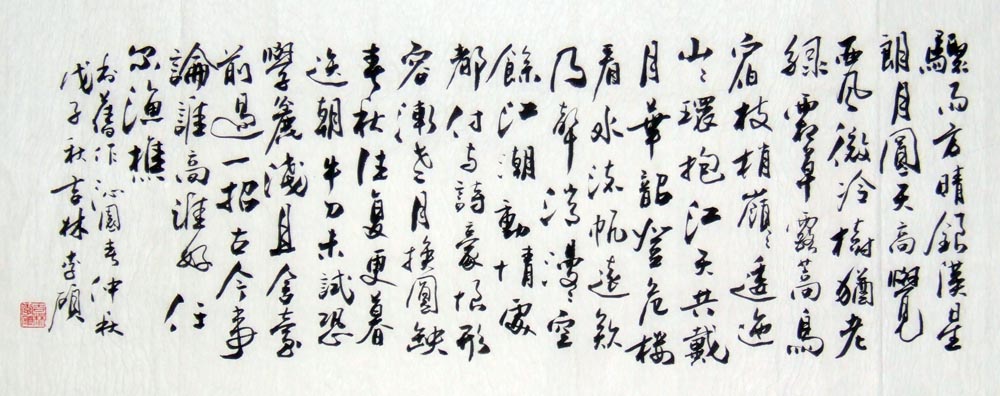 驟雨方晴銀漢星
朗月圓天高覺
西風微冷樹猶老
綠霜草露蒿鳥
宿枝梢嶺嶺逶迤
山山環抱江天共戴
月華韶登危樓
看水流帆遠欸
乃聲消漫漫空
餘江潮動情處
都付与詩豪恨形
容漸老月換圓缺
春秋往复更暮
迭朝牛刀未試恐
學淺且舍臺
前過一招古今事
論誰高誰好任
尔漁樵
書舊作沁園春仲秋
戊子秋吉林李碩